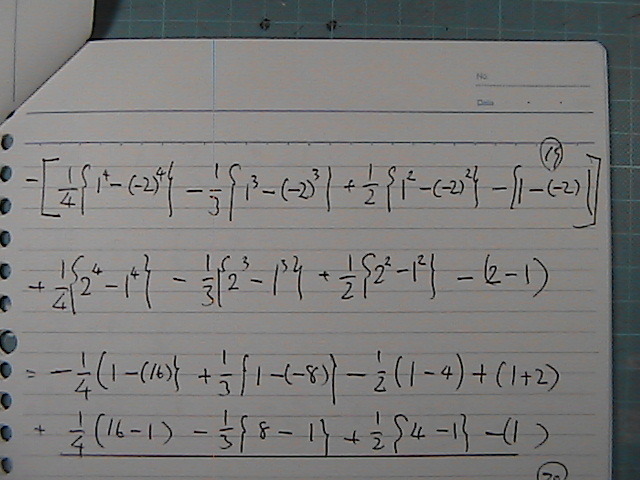 No.
Date
(19)
-[1/4{1^4-(-2)^4} -1/3{1^3-(-2)^3} +1/2{1^2-(-2)^2} -{1-(-2)}]
+1/4{2^4-1^4} -1/3{2^3-1^3} +1/2{2^2-1^2} -(2-1)
= -1/4(1-(16)} +1/3{1-(-8)} -1/2(1-4) +(1+2)
+ 1/4(16-1) -1/3{8-1} +1/2{4-1} -(1)